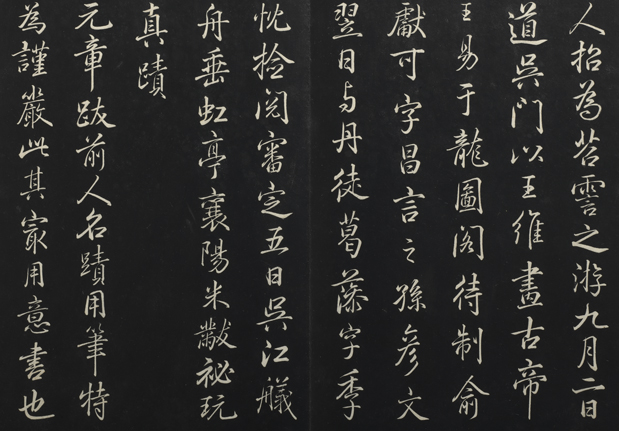 人招為苕霅之游九月二日
道吳門以王維畫古帝
王易于龍圖閣待制俞
獻可字昌言之孫彥文
翌日与丹徒葛藻字季
忱撿閱審定五日吳江艤
舟垂虹亭襄陽米黻祕玩
真蹟
元章跋前人名蹟用筆特
為謹嚴此其㝡用意書也